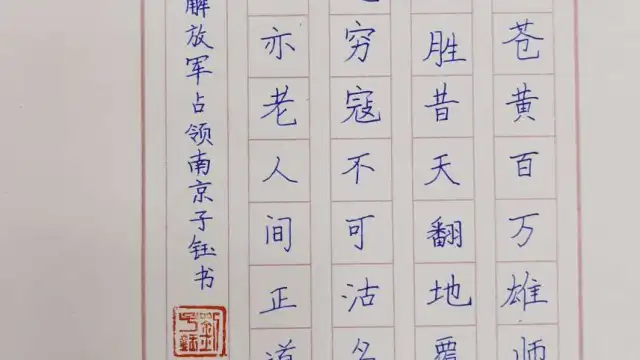 苍黄百万雄师
胜昔天翻地覆
穷寇不可沽名
亦老人间正道
解放军占领南京子钰书